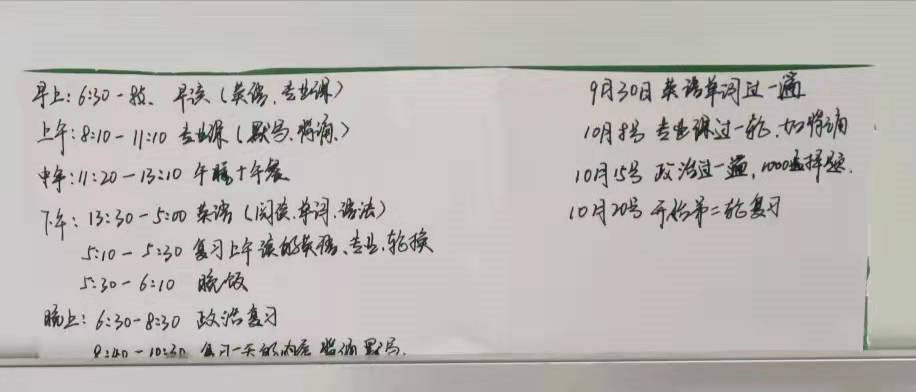 早上：6:30-8点、早读（英语、专业课）
上午：8:10-11:10 专业课（默写、背诵、）
中午：11:20-13:10 午睡+午餐
下午：13:30-5:00 英语（阅读、单词、语法）
5:10-5:30 复习上午读的英语、专业、轮换
5:30-6:10 晚饭
晚上：6:30-8:30 政治复习
8:40-10:30 复习一天的内容 背诵默写.
9月30日 英语单词过一遍
10月8号 专业课过一轮、背诵
10月15号 政治过一遍，1000选择题.
10月20号 开始第二轮复习